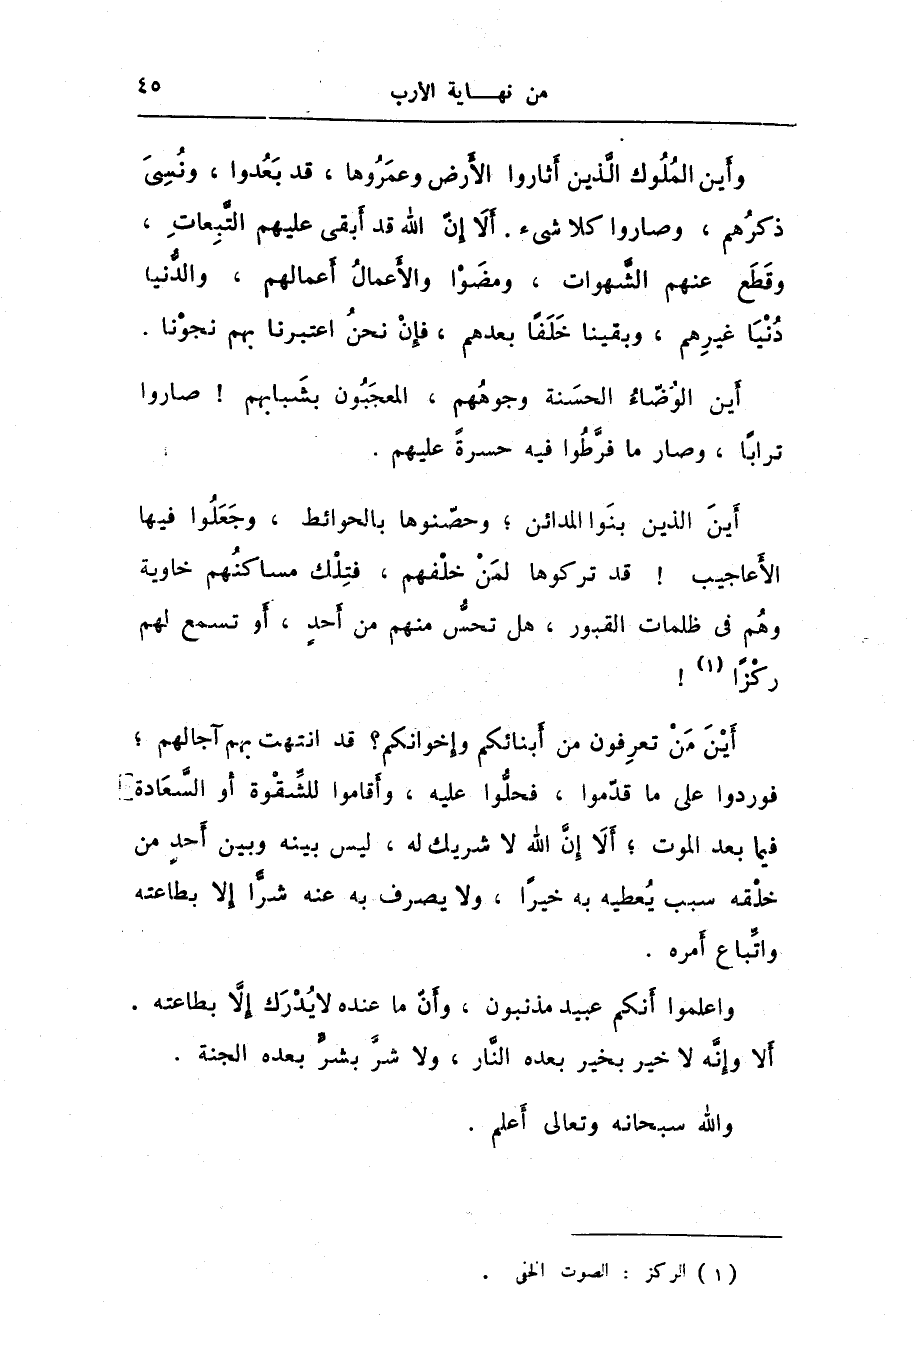 من نهـــاية الأرب ٤٥
وأَين المُلُوك الَّذين أَثاروا الأَرض وعمَرُوها ، قد بَعُدوا ، ونُسِىَ
ذكرُهم ، وصاروا كلا شىء . أَلَا إِنّ الله قد أَبقى عليهم التَّبِعاتِ ،
وقَطَع عنهم الشَّهوات ، ومضَوْا والأَعمالُ أَعمالهم ، والدُّنيا
دُنْيَا غيرِهم ، وبقينا خَلَفًا بعدهم ، فإِنْ نحنُ اعتبرنا بهم نجوْنا .
أَين الوُضّاءُ الحسَنة وجوهُهم ، المعجَبُون بشَبابهم ! صاروا
ترابًا ، وصار ما فرَّطُوا فيه حسرةً عليهم .
أَينَ الذين بنَوا المدائن ؛ وحصّنوها بالحوائط ، وجَعَلُوا فيها
الأَعاجيب ! قد تركوها لمَنْ خلْفهم ، فتِلْك مساكنُهم خاوية
وهُم فى ظلمات القبور ، هل تحسُّ منهم من أَحدٍ ، أَو تسمع لهم
ركْزًا (١) !
أَيْنَ مَنْ تعرِفون من أَبنائكم وإِخوانكم؟ قد انتهت بهم آجالهم ؛
فوردوا على ما قدّموا ، فحلُّوا عليه ، وأَقاموا للشِّقْوة أَو السَّعَادة
فيما بعد الموت ؛ أَلَا إِنَّ الله لا شريك له ، ليس بينه وبين أَحدٍ من
خلْقه سبب يُعطيه به خيرًا ، ولا يصرف به عنه شرًّا إلا بطاعته
واتِّباع أَمره .
واعلموا أَنكم عبيد مذنبون ، وأَنّ ما عنده لايُدْرَك إِلَّا بطاعته .
أَلا وإِنَّه لا خير بخير بعده النَّار ، ولا شرَّ بشرٍّ بعده الجنة .
والله سبحانه وتعالى أَعلم .
(١) الركز : الصوت الخفى .